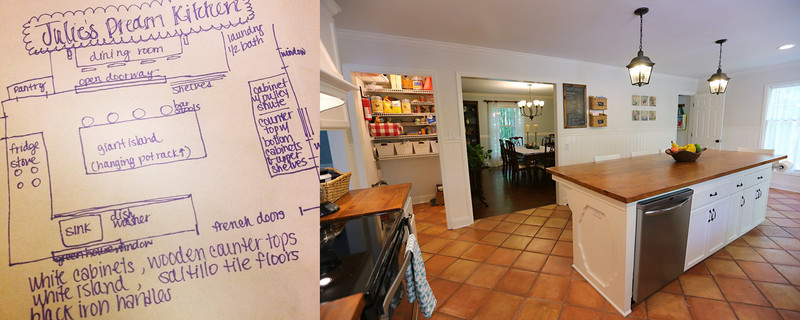 Julie's Dream Kitchen
dining room
laundry
1/2 bath
window
open doorway
shelves
pantry
bar
stools
cabinet
w/ pulley
shute
counter
top w/
bottom
cabinets
& upper
shelves
giant island
(hanging pot rack↑)
fridge
stove
dish
washer
SINK
french doors
greenhouse window
white cabinets, wooden counter tops
white island, saltillo tile floors
black iron handles